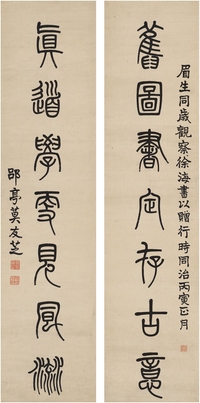 舊圖書定存古意
眉生同歲觀察徐海書以贈行時同治丙寅正月
眞道學更見風流
郘亭莫友芝